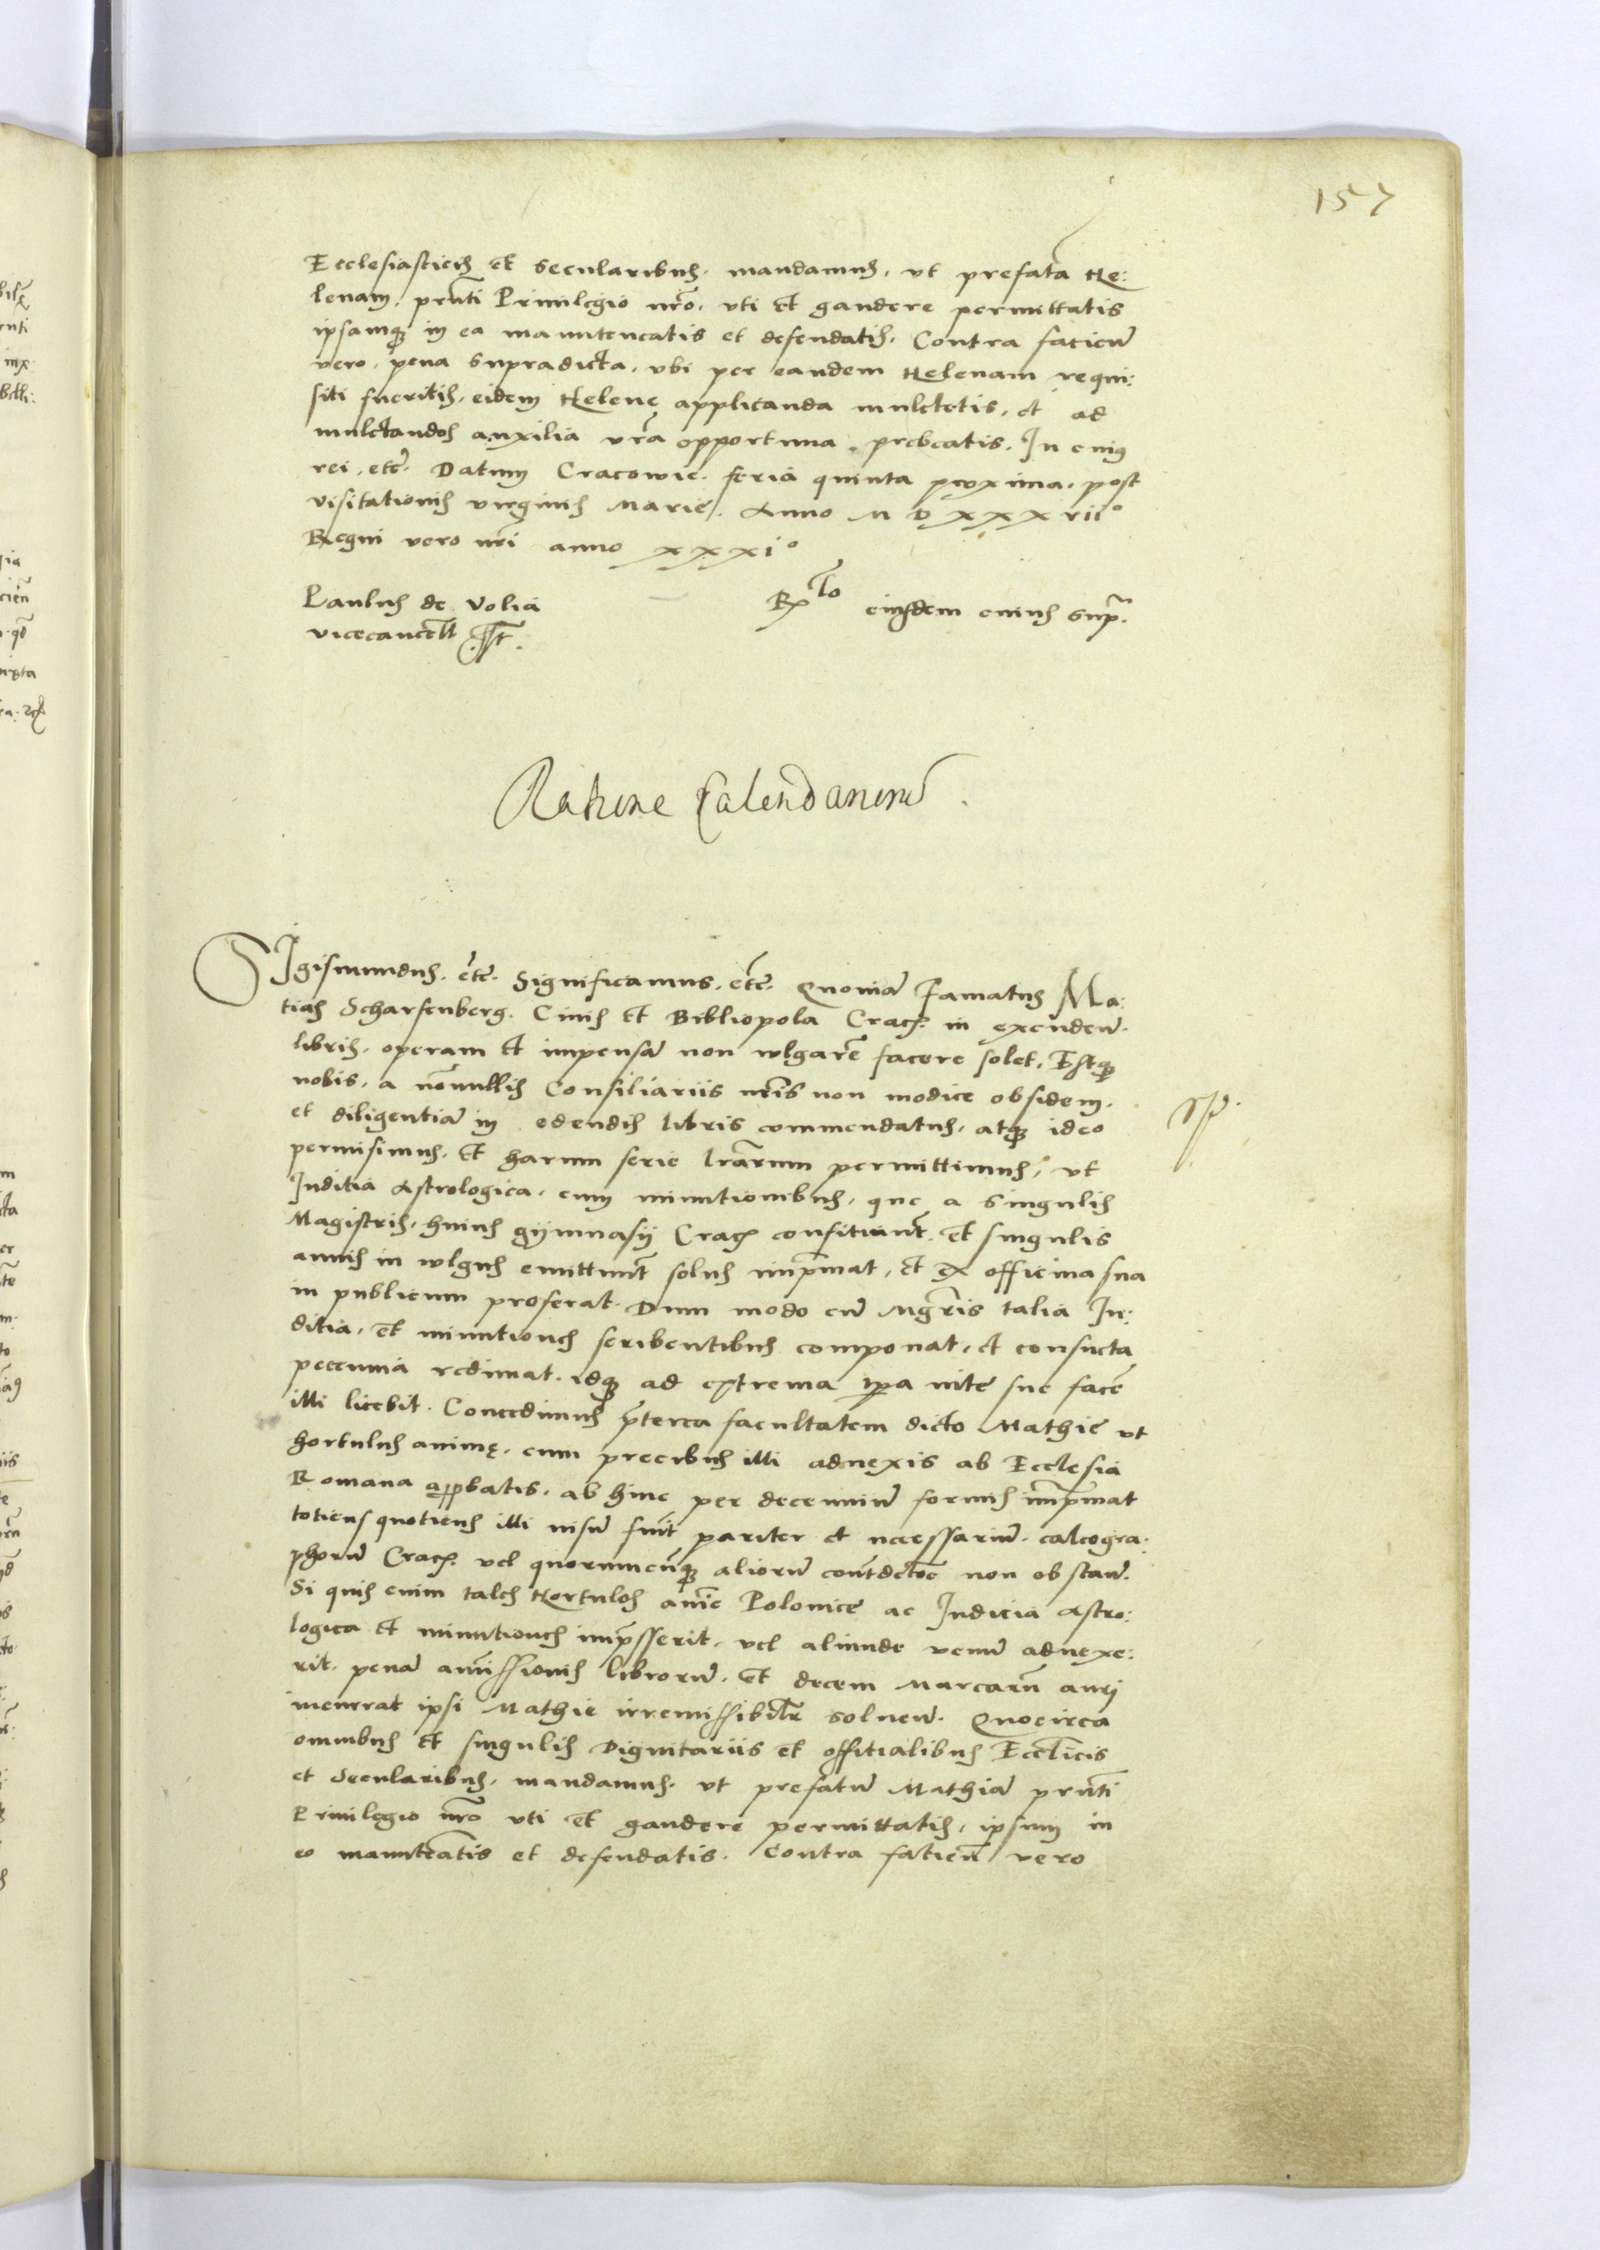 157
Ecclesiasticis et secularibus. mandamus, vt prefatā He:
lenam, prn̄ti Priuilegio nr̄o, vti et gaudere permittatis
ipsamq; in ea manuteneatis et defendatis. Contra faciēn
vero, pena supradicta, vbi per eandem Helenam requi:
siti fueritis, eidem Helenę applicanda mulctetis, et ad
mulctandos auxilia vrā opportuna prebeatis. In cuius
rei, etc̄. Datum Cracowie. feria quinta proxima, post
visitationis virginis Marie. Anno M D XXXVII°
Regni vero nr̄i anno XXXI°
Paulus de Volia
vicecancell̄ ss̄t.
Rlo eiusdem cuius supr̄.
Ratione Calendariorū.
SIgismundus. etc̄. Significamus, etc̄. Quoniā Famatus Ma:
tias Scharfenberg. Ciuis et Bibliopola Crac̄. in excudeñ.
libris, operam et impensā non wlgarē facere solet, Estq;
nobis, a nōnullis Consiliariis nr̄is non modice ob fidem,
et diligentiā in edendis libris commendatus, atq; ideo
permisimus, et harum serie lrārum permittimus, vt
Inditia Astrologica, cum minutionibus, que a singulis
Magistris, huius gymnasij Crac̄ confitiunt̄. et singulis
annis in wlgus emittunt̄ solus imp̄mat, et ex officina sua
in publicum proferat. Dum modo cū Mgr̄is talia In:
ditia, et minutiones scribentibus componat, et consueta
peccunia redimat. idq; ad extrema tp̄a vite sue facē
illi licebit. Concedimus p̄terea facultatem dicto Mathie vt
hortulus animę, cum precibus illi adnexis ab Ecclesia
Romana app̄batis, ab hinc per decenniū formis imp̄mat
totiens quotiens illi visū fuīt pariter et necessariū. calcogra:
phorū Crac̄. vel quorumcūq; aliorū cont̄dictōe non obstañ.
Si quis enim tales Hortulos anīe Polonice ac Indicia Astro:
logica et minutiones imp̄sserit, vel aliunde venū adnexe:
rit, penā amissionis librorū. et decem Marcarū auri
incurrat ipsi Mathie irremissibilr̄ solueñ. Quocirca
omnibus et singulis Dignitariis et offitialibus Eccl̄icis
et Secularibus, mandamus. vt prefatū Mathiā prn̄ti
Priuilegio nr̄o vti et gaudere permittatis, ipsum in
eo manuteāatis et defendatis. Contra faticñ vero